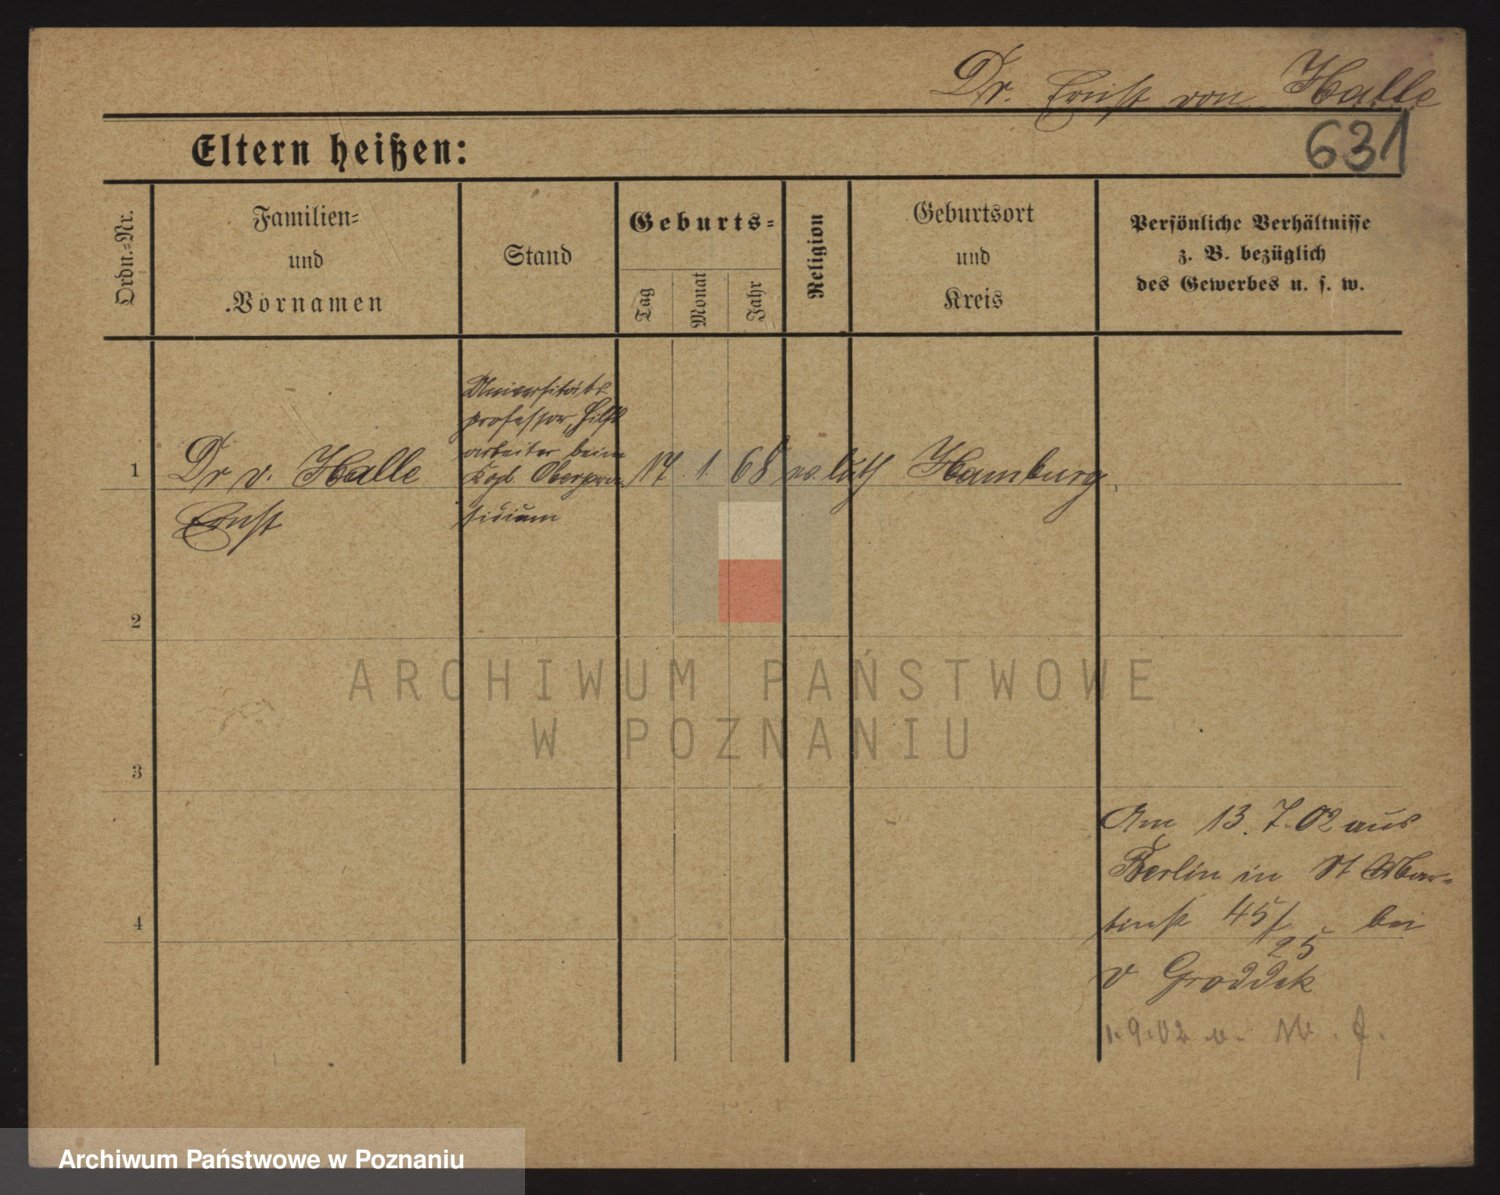 Dr. Ernst von Halle
631
Eltern heißen:
Ordn.-Nr.
Familien-
und
Vornamen
Stand
Geburts-
Tag
Monat
Jahr
Religion
Geburtsort
und
Kreis
Persönliche Verhältnisse
z. B. bezüglich
des Gewerbes u. s. w.
1
Dr v. Halle
Ernst
Universitäts
professor, Hilfs
arbeiter beim
Kgl. Oberprä
sidium
17 1. 68
ev. luth
Hamburg.
2
3
4
Am 13. 7. 02 aus
Berlin in St Mar-
tinst 45/
25 bei
v Groddek
1.9.02
ARCHIWUM PAŃSTWOWE
W POZNANIU
Archiwum Państwowe w Poznaniu